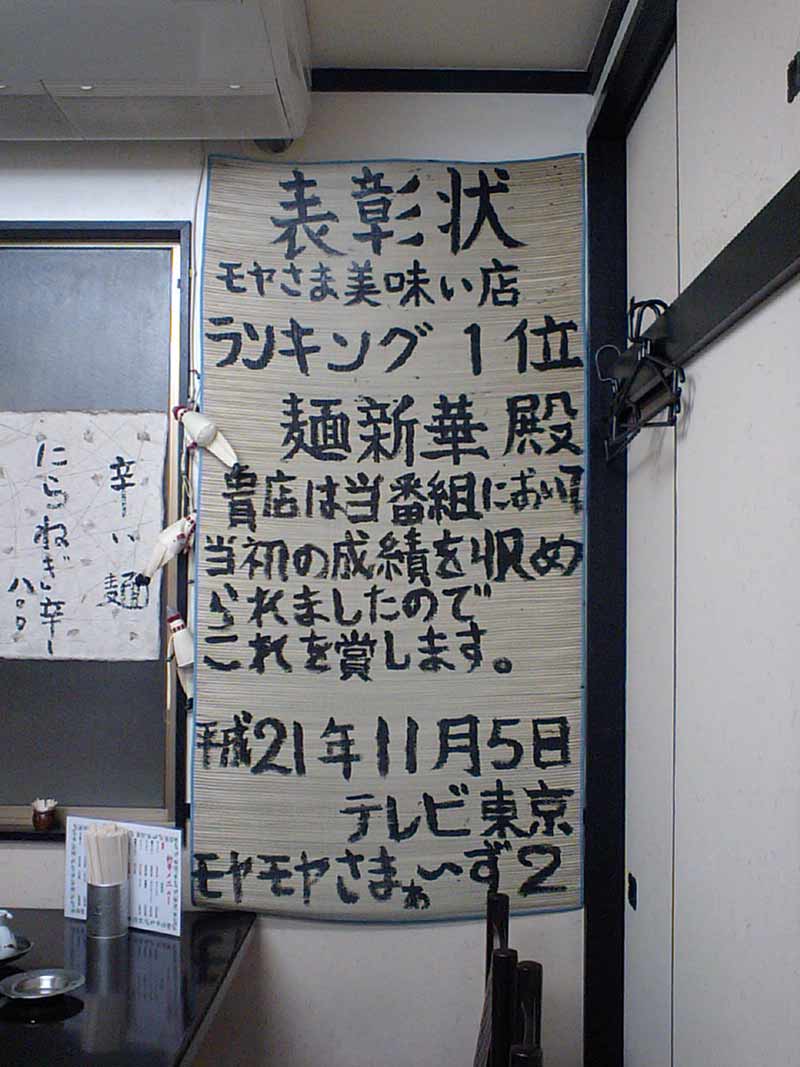 表彰状
モヤさま美味い店
ランキング1位
麺新華殿
貴店は当番組において
当初の成績を収め
られましたので
これを賞します。
平成21年11月5日
テレビ東京
モヤモヤさまぁいず2
辛い麺
にらねぎ辛し
八〇〇